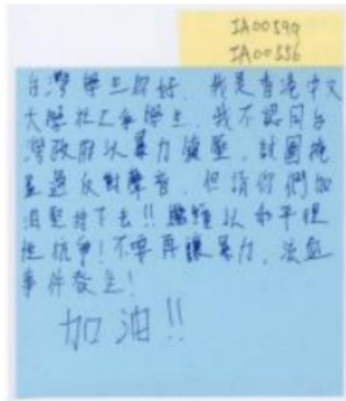 IA00590
IA00556
台灣學生你好. 我是香港中文
大學社工系學生. 我不認同台
灣政府以暴力鎮壓. 試圖掩
蓋過反對聲音. 但請你們加
油堅持下去!! 繼續以和平理
性抗爭! 不要再讓暴力、流血
事件發生!
加油!!